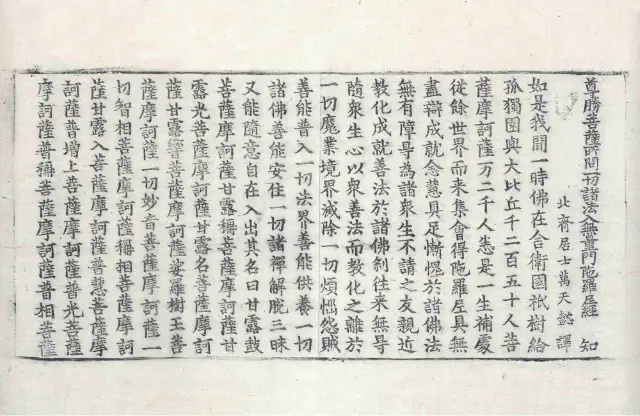 尊勝菩薩所問一切諸法入無量門陀羅尼經 知
北齊居士萬天懿譯
如是我聞一時佛在舍衛國祇樹給
孤獨園與大比丘千二百五十人菩
薩摩訶薩万二千人悉是一生補處
從餘世界而來集會得陀羅尼具無
盡辯成就念慧具足慚愧於諸佛法
無有障㝵為諸衆生不請之友親近
教化成就善法於諸佛刹往來無㝵
隨衆生心以衆善法而教化之離於
一切魔業境界滅除一切煩惱怨賊
善能普入一切法界善能供養一切
諸佛善能安住一切諸禪解脫三昧
又能隨意自在入出其名曰甘露鼓
菩薩摩訶薩甘露稱菩薩摩訶薩甘
露光菩薩摩訶薩甘露名菩薩摩訶
薩甘露響菩薩摩訶薩娑羅樹王菩
薩摩訶薩一切妙音菩薩摩訶薩一
切智相菩薩摩訶薩稱相菩薩摩訶
薩甘露入菩薩摩訶薩普慧菩薩摩
訶薩普增上菩薩摩訶薩普光菩薩
摩訶薩普稱菩薩摩訶薩普相菩薩